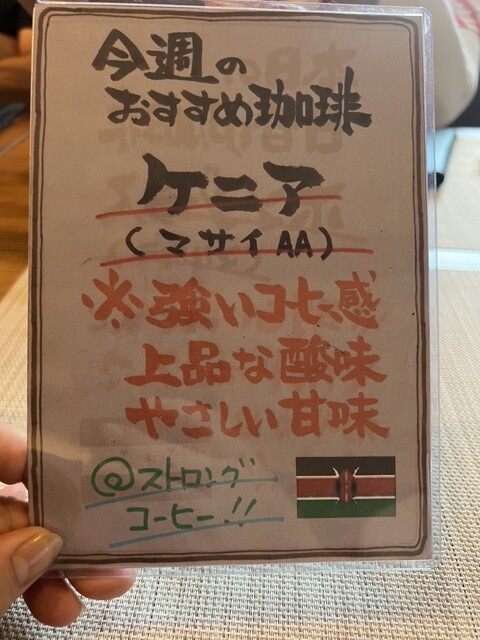 今週の
おすすめ珈琲
ケニア
(マサイAA)
※強いコーヒー感
上品な酸味
やさしい甘味
@ストロング
コーヒー!!